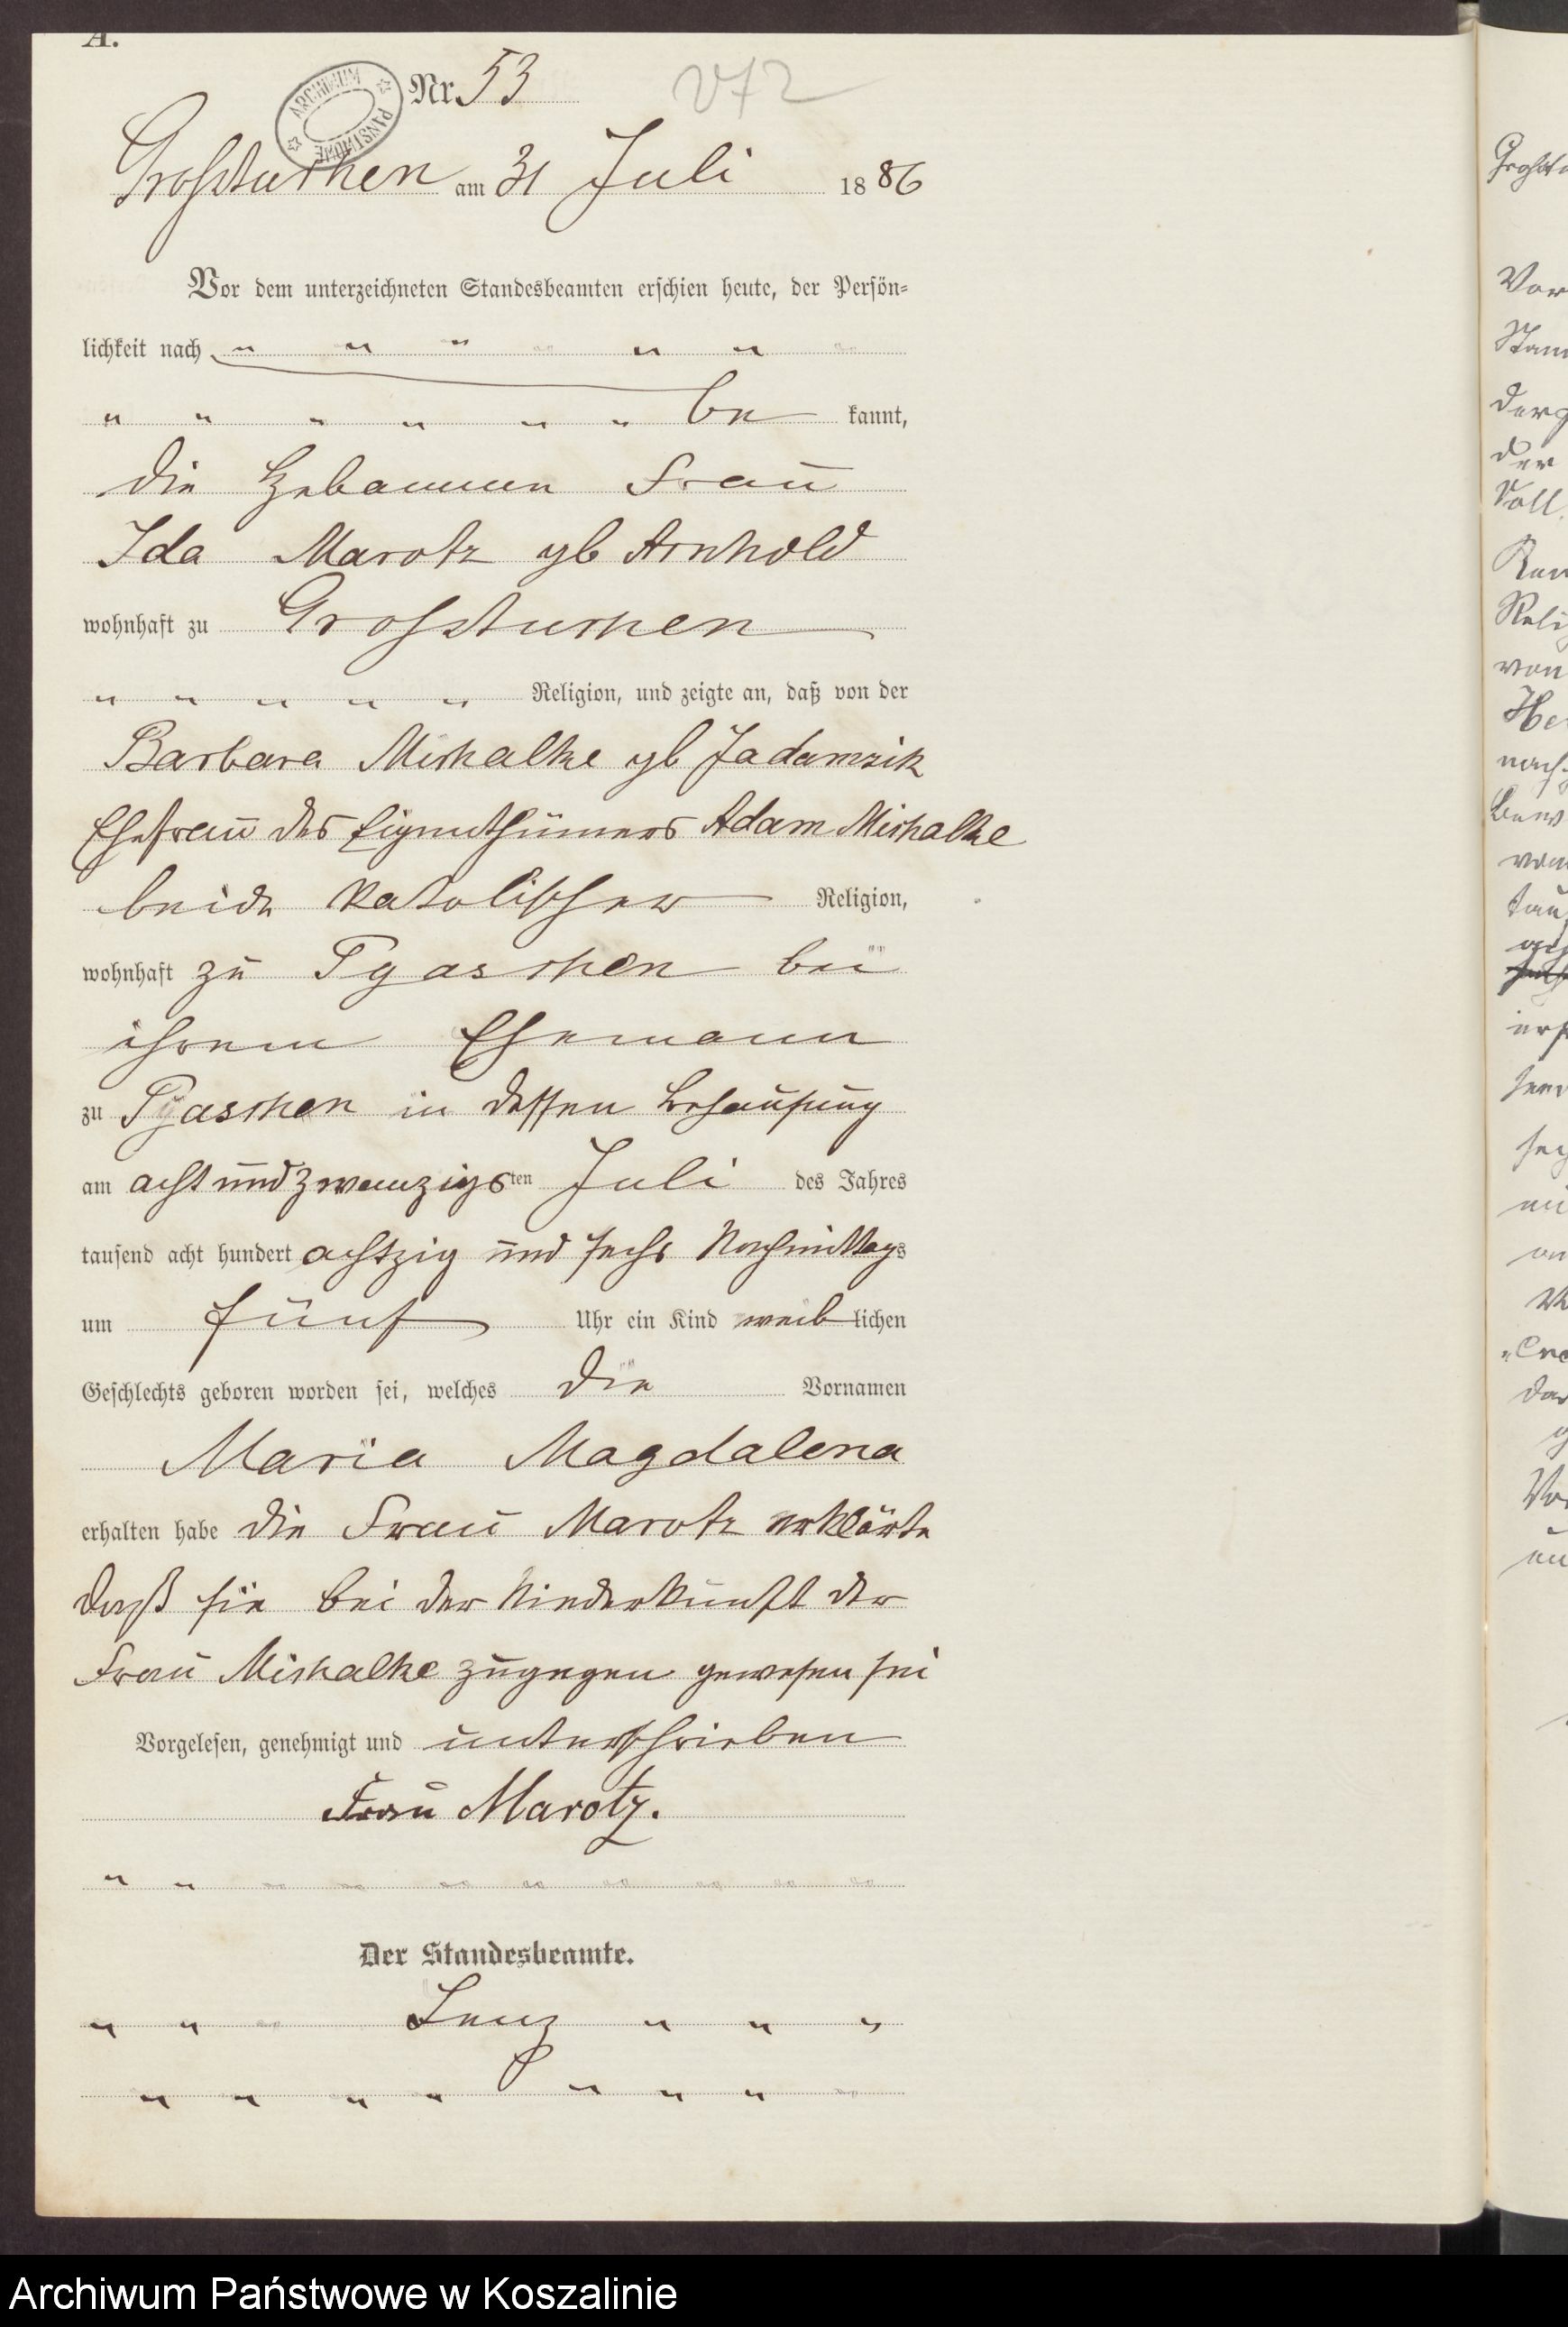 A.
ARCHIWUM PAŃSTWOWE
Nr. 53
Großtuchen am 31 Juli 1886
Vor dem unterzeichneten Standesbeamten erschien heute, der Persön-
lichkeit nach
be kannt,
die Hebamme Frau
Ida Marotz gb Arnhold
wohnhaft zu Großtuchen
Religion, und zeigte an, daß von der
Barbara Michalke gb Jadamzik
Ehefrau des Eigenthümers Adam Michalke
beide katolischer Religion,
wohnhaft zu Pyaschen bei
ihrem Ehemann
zu Pyaschen in dessen Behausung
am acht und zwanzigsten Juli des Jahres
tausend acht hundert achtzig und sechs Nachmittags
um fünf Uhr ein Kind weiblichen
Geschlechts geboren worden sei, welches die Vornamen
Maria Magdalena
erhalten habe die Frau Marotz erklärte
daß sie bei der Niederkunft der
Frau Michalke zugegen gewesen sei
Vorgelesen, genehmigt und unterschrieben
Frau Marotz.
Der Standesbeamte.
Lenz
Archiwum Państwowe w Koszalinie